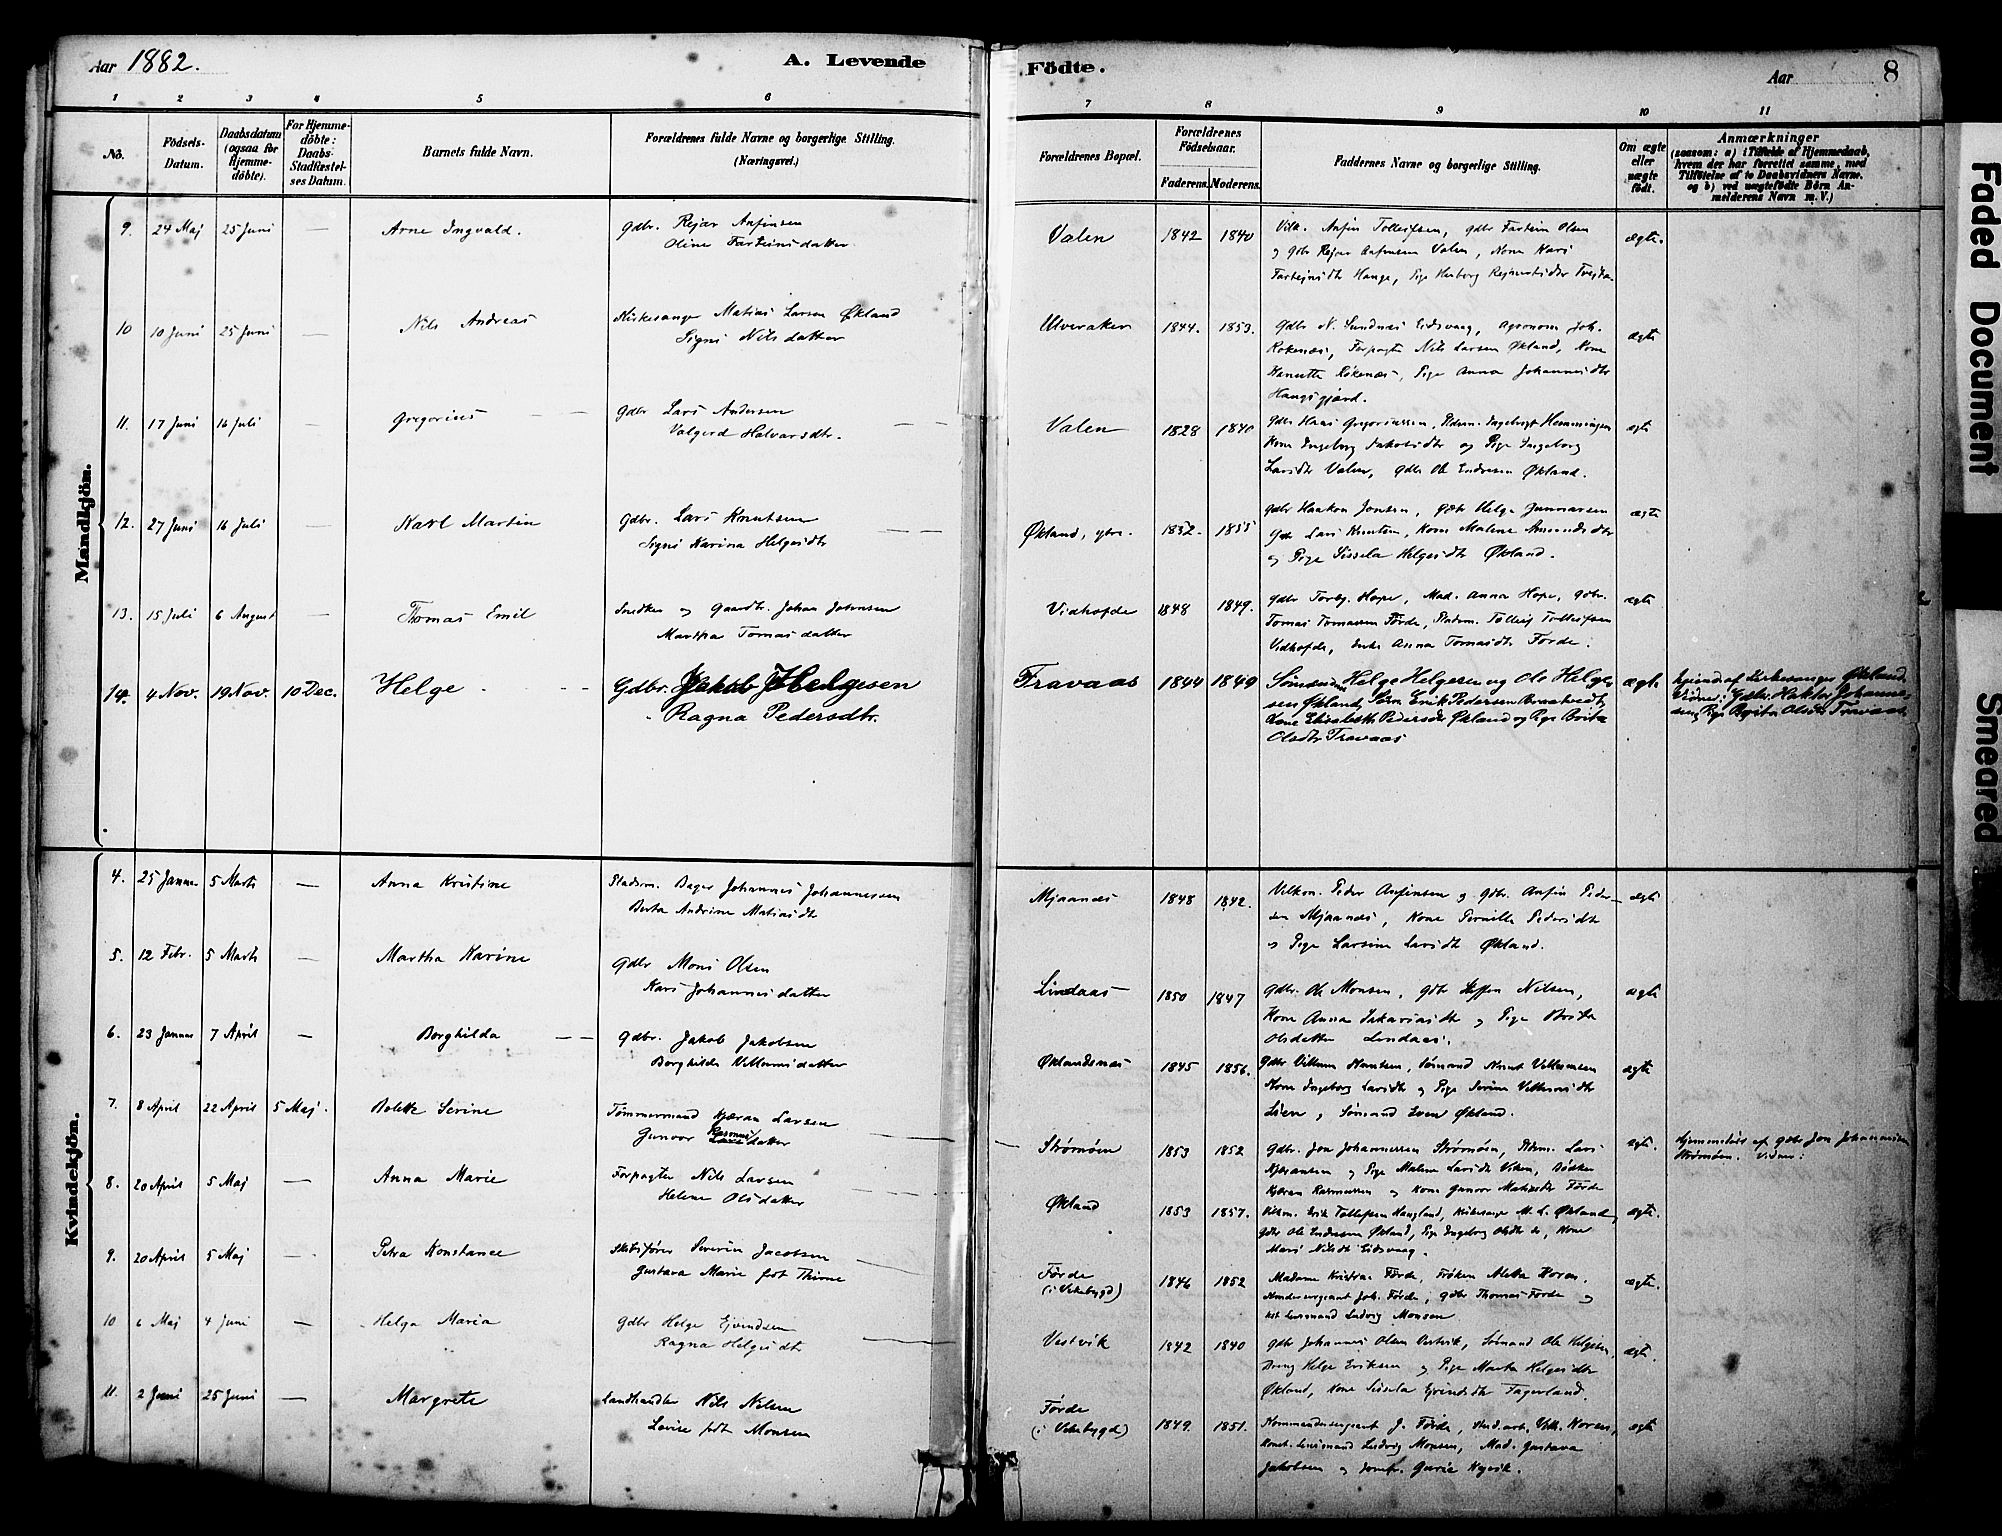 Aar 1882.
A. Levende Födte.
Aar
8
1 2 3 4 5 6 7 8 9 10 11
No.
Födsels-Datum.
Daabsdatum (ogsaa for Hjemmedöbte).
For Hjemmedöbte: Daabs-Stadfæstelses Datum.
Barnets fulde Navn.
Forældrenes fulde Navne og borgerlige Stilling. (Næringsvei.)
Forældrenes Bopæl.
Forældrenes Födselsaar.
Faderens. Moderens.
Faddernes Navne og borgerlige Stilling.
Om ægte eller uægte födt.
Anmærkninger
(saasom: a) i Tilfælde af Hjemmedaab, hvem der har forrettet samme, med Tilföielse af to Daabsvidners Navne. og b) ved uægtefödte Börn Anmelderens Navn m. V.)
Mandkjön.
9. 24 Maj 25 Juni — Arne Ingvald. Gdbr. Rejar Anfinsen
Oline Farteinsdatter.
Valen 1842 1840 Vilk. Anfin Tolleifsen, gdbr Fartein Olsen
og gdbr Rejar Anfinsen Valen, Kone Kari
Farteinsdtr Hauge, Pige Herborg
ægte.
10 10 Juni 25 Juni — Nils Andreas Kirkesanger Matias Larsen Økland
Signi Nilsdatter
Ulveraker 1844. 1853. Gdbr N. Sundnæs Eidsvaag, Agronom Joh.
Rökenæs, Forpagter Nils Larsen Økland, Kone
Rökenæs, Pige Anna Johannesdtr
Haugsgjærd.
ægte
11. 17 Juni 16 Juli — Gregorius — — Gdbr Lars Andersen
Valgerd Halvarsdtr.
Valen 1828 1840 Gdbr Haas Gregoriussen, Pladsm. Ingebrigt Henningsen
Kone Ingeborg Jakobsdtr og Pige Ingeborg
Larsdtr Valen, gdbr Ole Endresen Økland.
ægte
12. 27 Juni 16 Juli — Karl Martin Gdbr. Lars Knutsen
Signi Karina Helgesdtr
Økland, ytre. 1852. 1855 Gdbr Haakon Jonsen, Gdbr Helge Gunnarsen
Gdbr Lars Knutsen, Kone Malene Amundsdtr
og Pige Sissela Helgesdtr Økland.
ægte
13. 15 Juli 6 August — Thomas Emil Snedker og Gaardbr. Johan Johnsen
Martha Tomasdatter
Vidhofde 1848 1849. Gdbr Torbj. Hope, Mad. Anna Hope, Gdbr.
Tomas Tomassen Förde, Pladsm. Tolleif Tolleifsen
Vidhofde, Enke Anna Tomasdtr Förde.
ægte
14. 4 Nov. 19 Nov. 10 Dec. Helge Gdbr. Jakob Helgesen
Ragna Pedersdtr.
Travaas 1844 1849 Sömænd Helge Helgesen og Ole Helge-
sen Økland, Erik Pedersen Braatvedt,
Kone Elisabeth Pedersdtr Økland og Pige Brita
Olsdtr Travaas
ægte
af Kirkesanger Økland.
Vidner: Gdbr. Haktor Johanne-
sen, Pige Brita Olsdtr Travaas
Kvindekjön.
4. 25 Januar 5 Marts — Anna Kristine Pladsm. Bager Johannes Johannessen
Berta Andrine Matiasdtr
Mjaanæs 1848 1842. Peder Anfinsen og gdbr. Anfin Peder-
sen Mjaanæs, Kone Pernille Pedersdtr
og Pige Larsine Larsdtr Økland.
ægte
5. 12 Febr. 5 Marts — Martha Karine Gdbr Mons Olsen
Kari Johannesdatter
Lindaas 1850 1847 Gdbr. Ole Monsen, Gdbr Steffen Nilsen,
Kone Anna Sakariasdtr og Pige Brita
Olsdatter Lindaas.
ægte
6. 23 Januar 7 April — Borghilda — — Gdbr. Jakob Jakobsen
Borghilde Villumsdatter
Øklandsnæs 1845 1856. Gdbr Villum Knutsen, Sömand Knut Villumsen
Kone Ingeborg Larsdtr og Pige Serine Villumsdtr
Lien, Sömand Even Økland.
ægte
7. 8 April 22 April 5 Maj. Bolette Serine Tömmermand Kjæran Larsen
Gunvor Rasmusdatter
Strömöen 1853 1852 Gdbr. Jon Johannessen Strömöen, Pladsm. Lars
Kjæransen og Pige Malene Larsdtr Viken, Bödker
Kjæran Rasmussen og Kone Gunvor Matiasdtr Förde
ægte.
Hjemmedöbt af gdbr Jon Johannesen
Strömöen. Vidner:
8. 20 April 5 Maj — Anna Marie Forpagter Nils Larsen
Helene Olsdatter
Økland 1853 1857. Erik Tollefsen Haugland, Kirkesanger M. L. Økland,
Gdbr Ole Endresen Økland, Pige Ingeborg Olsdtr, Kone
Mari Nilsdtr Eidsvaag.
ægte.
9. 20 April 5 Maj — Petra Konstance Skibsförer Severin Jacobsen
Gustava Marie födt Thirne
Förde
(i Vikebygd) 1846 1852 Madame Kristine Förde, Fröken Aletta Koren.
Kommandersergeant Joh. Förde, gdbr Thomas Förde og
kst Lensmand Ludvig Monsen
ægte.
10 6 Maj 4 Juni — Helga Maria Gdbr Helge Ejvindsen
Ragna Helgesdtr
Vestvik 1842 1840 Gdbr Johannes Olsen Vestvik, Sömand Ole Helgesen,
Dreng Helge Eriksen og Pige Marta Helgesdtr
Økland, Kone Sissela Ejvindsdtr Fagerland.
ægte.
11. 2 Juni 25 Juni — Margrete Landhandler Nils Nilsen
Lovise födt Monsen
Förde
(i Vikebygd) 1849. 1851. Kommandersergeant J. Förde, Vilh. Koren,
Konst. Lensmand Ludvig Monsen, Mad. Gustava
Jakobsen og Jomfr. Gurie Nyvik.
ægte
Faded Document
Smeared